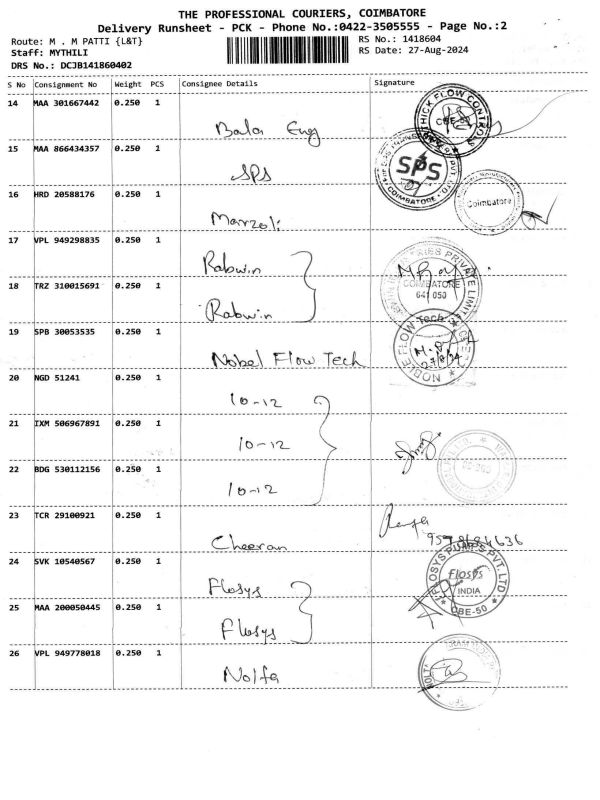 THE PROFESSIONAL COURIERS, COIMBATORE
Delivery Runsheet - PCK - Phone No.:0422-3505555 - Page No.:2
Route: M . M PATTI {L&T}
RS No.: 1418604
Staff: MYTHILI
RS Date: 27-Aug-2024
DRS No.: DCJB141860402
S No Consignment No Weight PCS Consignee Details Signature
14 MAA 301667442 0.250 1
Bala Eng
THICK FLOW CONTROLS
CBE-50
15 MAA 866434357 0.250 1
SPS
SPS
COIMBATORE
16 HRD 20588176 0.250 1
Marzoli
Coimbatore
17 VPL 949298835 0.250 1
Rabwin
PRIVATE LIMITED
COIMBATORE
641 050
18 TRZ 310015691 0.250 1
Rabwin
19 SPB 30053535 0.250 1
Nobel Flow Tech
NOBLE FLOW Tech
27/8/24
20 NGD 51241 0.250 1
10-12
21 IXM 506967891 0.250 1
10-12
22 BDG 530112156 0.250 1
10-12
23 TCR 29100921 0.250 1
Cheeran
24 SVK 10540567 0.250 1
Flosys
FLOSYS PUMPS PVT. LTD.
Flosys
INDIA
CBE-50
25 MAA 200050445 0.250 1
Flosys
26 VPL 949778018 0.250 1
Nolfa